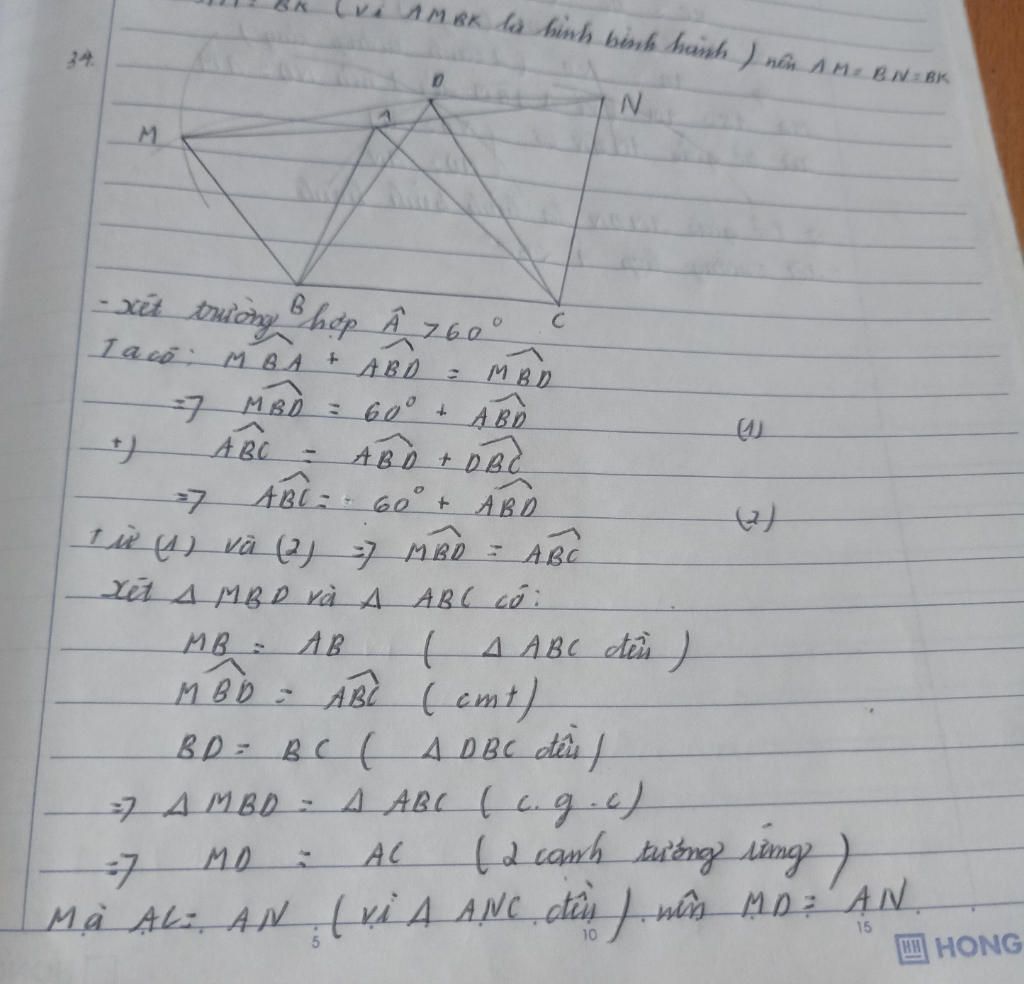 = BK ( vì AMBK là hình bình hành ) nên AM = BN = BK
34.
D
N
M
A
B
C
- xét trường hợp Â > 60°
Ta có: $\widehat{MBA}$ + $\widehat{ABD}$ = $\widehat{MBD}$
=> $\widehat{MBD}$ = 60° + $\widehat{ABD}$ (1)
+) $\widehat{ABC}$ = $\widehat{ABD}$ + $\widehat{DBC}$
=> $\widehat{ABC}$ = 60° + $\widehat{ABD}$ (2)
Từ (1) và (2) => $\widehat{MBD}$ = $\widehat{ABC}$
Xét Δ MBD và Δ ABC có:
MB = AB ( Δ ABC đều )
$\widehat{MBD}$ = $\widehat{ABC}$ ( cmt )
BD = BC ( Δ DBC đều )
=> Δ MBD = Δ ABC ( c.g.c )
=> MD = AC ( 2 cạnh tương ứng )
Mà AC = AN ( vì Δ ANC đều ) nên MD = AN
5 10 15
HONG